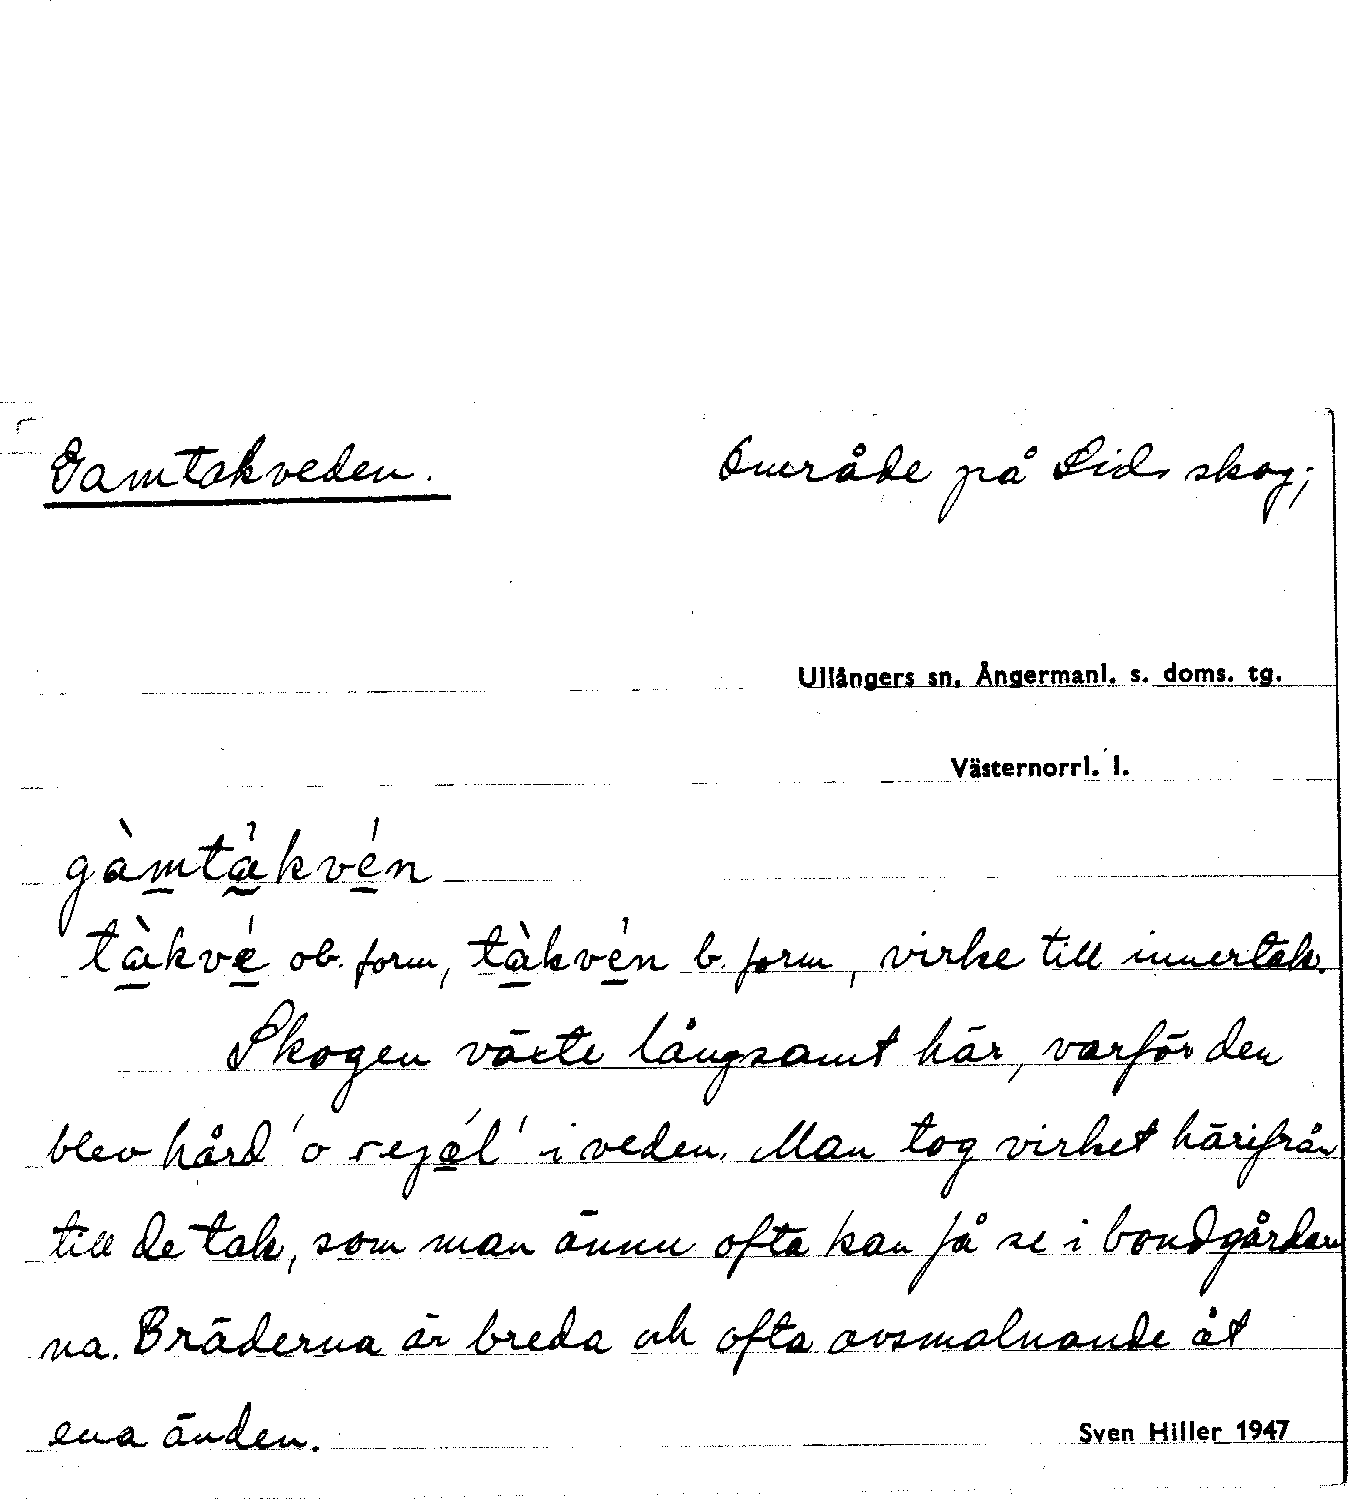 Gamtakveden. Område på Lids skog;
Ullångers sn. Ångermanl. s. doms. tg.
Västernorrl. l.
gàmtákvén
tàkvé ob. form, tàkvén b. form, virke till innertak.
Skogen växte långsamt här, varför den
blev hård 'o rejäl' i veden. Man tog virket härifrån
till de tak, som man ännu ofta kan få se i bondgårdar
na. Bräderna är breda och ofta avsmalnande åt
ena änden.
Sven Hiller 1947